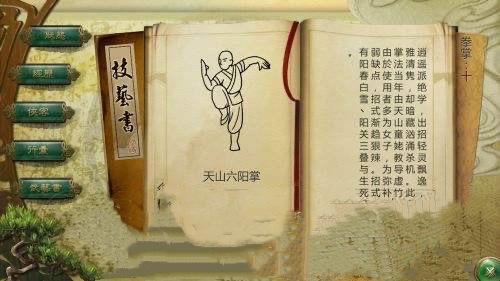 狀態
經歷
俠客
行囊
武藝書
技藝書
天山六阳掌
拳掌·十
逍遥派绝学,出招轻灵飘逸,
雅清隽,却暗藏汹涌杀机。此
掌法当年由天山童姥教导虚竹
由於使用者多为女子,为弥补
弱缺点,招式渐趋狠辣。招式
有阳春白雪、阳关三叠与生死